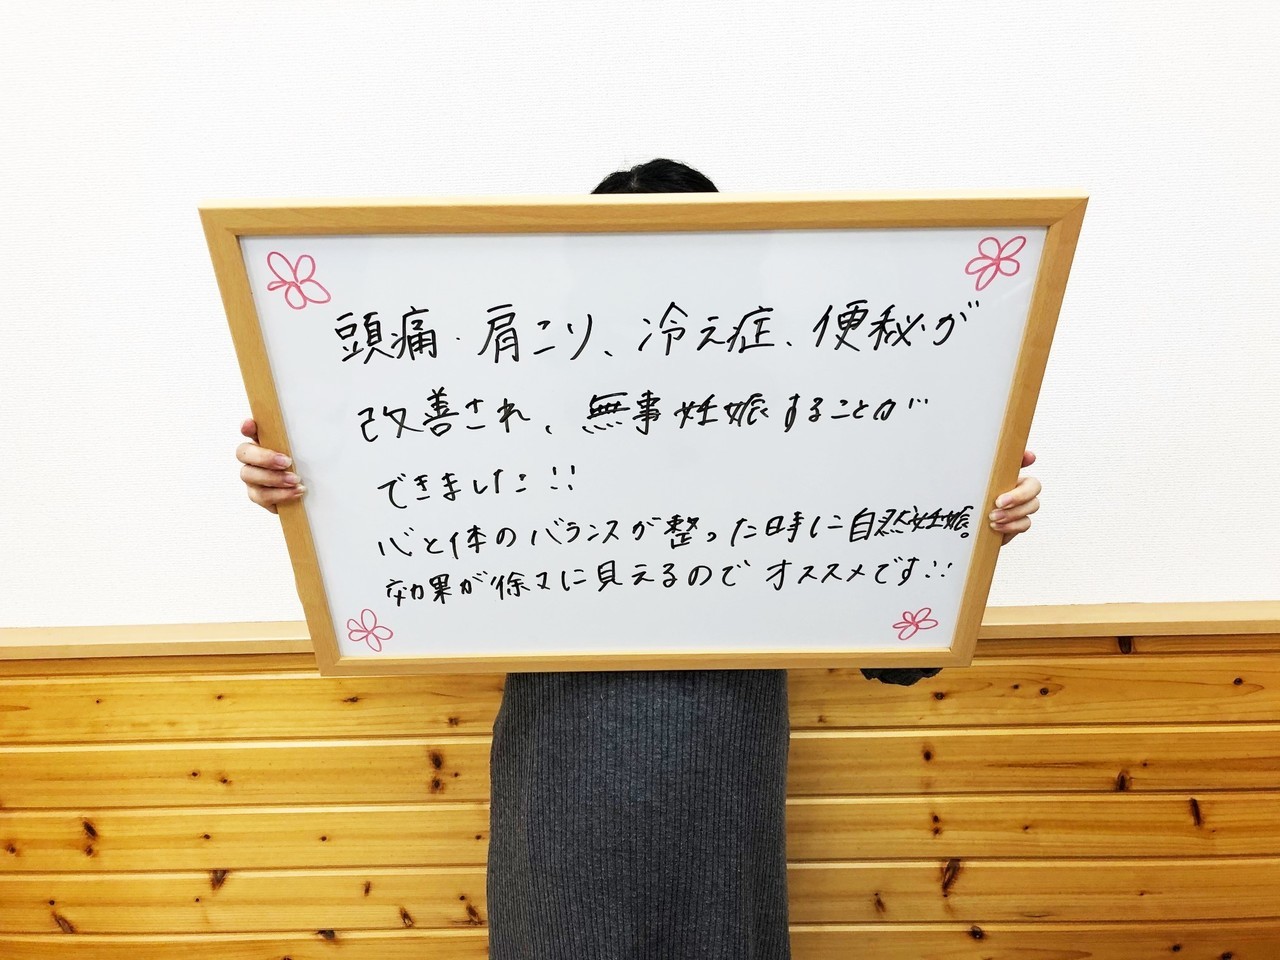 頭痛・肩こり、冷え症、便秘が
改善され、無事妊娠することが
できました!!
心と体のバランスが整った時に自然妊娠。
効果が徐々に見えるのでオススメです!!